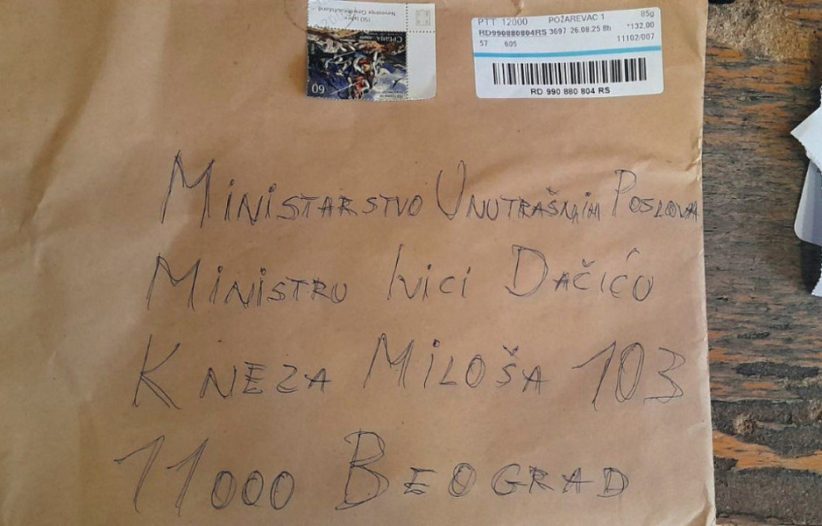 PTT 12000 POŽAREVAC 1 85g
RD990880804RS 3697 26.08.25 8h *132,00
57 605 11102/007
RD 990 880 804 RS
60
MINISTARSTVO UNUTRAŠNJIH POSLOVA
MINISTRU IVICI DAČIĆU
KNEZA MILOŠA 103
11000 BEOGRAD